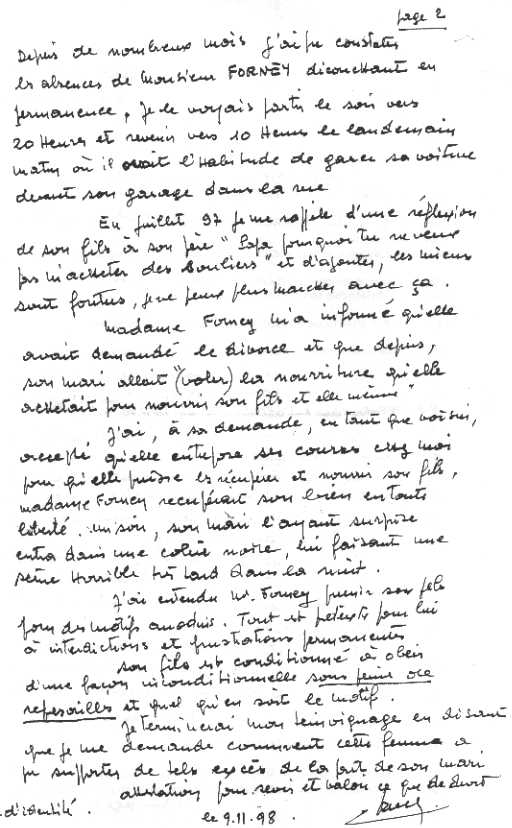 page 2
Depuis de nombreux mois j'ai pu constater
les absences de Monsieur FORNEY découchant en
permanence, je le voyais partir le soir vers
20 Heures et revenir vers 10 Heures le landemain
matin où il avait l'Habitude de garer sa voiture
devant son garage dans la rue
En juillet 97 je me rappèle d'une réflexion
de son fils à son père "Papa pourquoi tu ne veux
pas m'acheter des souliers" et d'ajouter, les miens
sont foutus, je ne peux plus marcher avec ça.
Madame Forney m'a informé qu'elle
avait demandé le divorce et que depuis,
son mari allait "(voler) la nourriture qu'elle
achetait pour nourrir son fils et elle même"
J'ai, à sa demande, en tant que voisin,
accepté qu'elle entrepose ses courses chez moi
pour qu'elle puisse les récupérer et nourrir son fils,
madame Forney recupérant son bien en toute
liberté. un soir, son mari l'ayant surprise
entra dans une colère noire, lui faisant une
scène Horrible très tard dans la nuit.
J'ai entendu M. Forney punir son fils
pour des motifs anodins. Tout est pretexte pour lui
à interdictions et frustations permanentes
son fils est conditionné à obeir
d'une façon inconditionnelle sous peine de
represailles et quel qu'en soit le motif.
Je terminerai mon témoignage en disant
que je me demande comment cette femme a
pu supporter de tels excés de la part de son mari
attestation pour servir et valoir ce que de droit
d'identité. le 9.11.98.